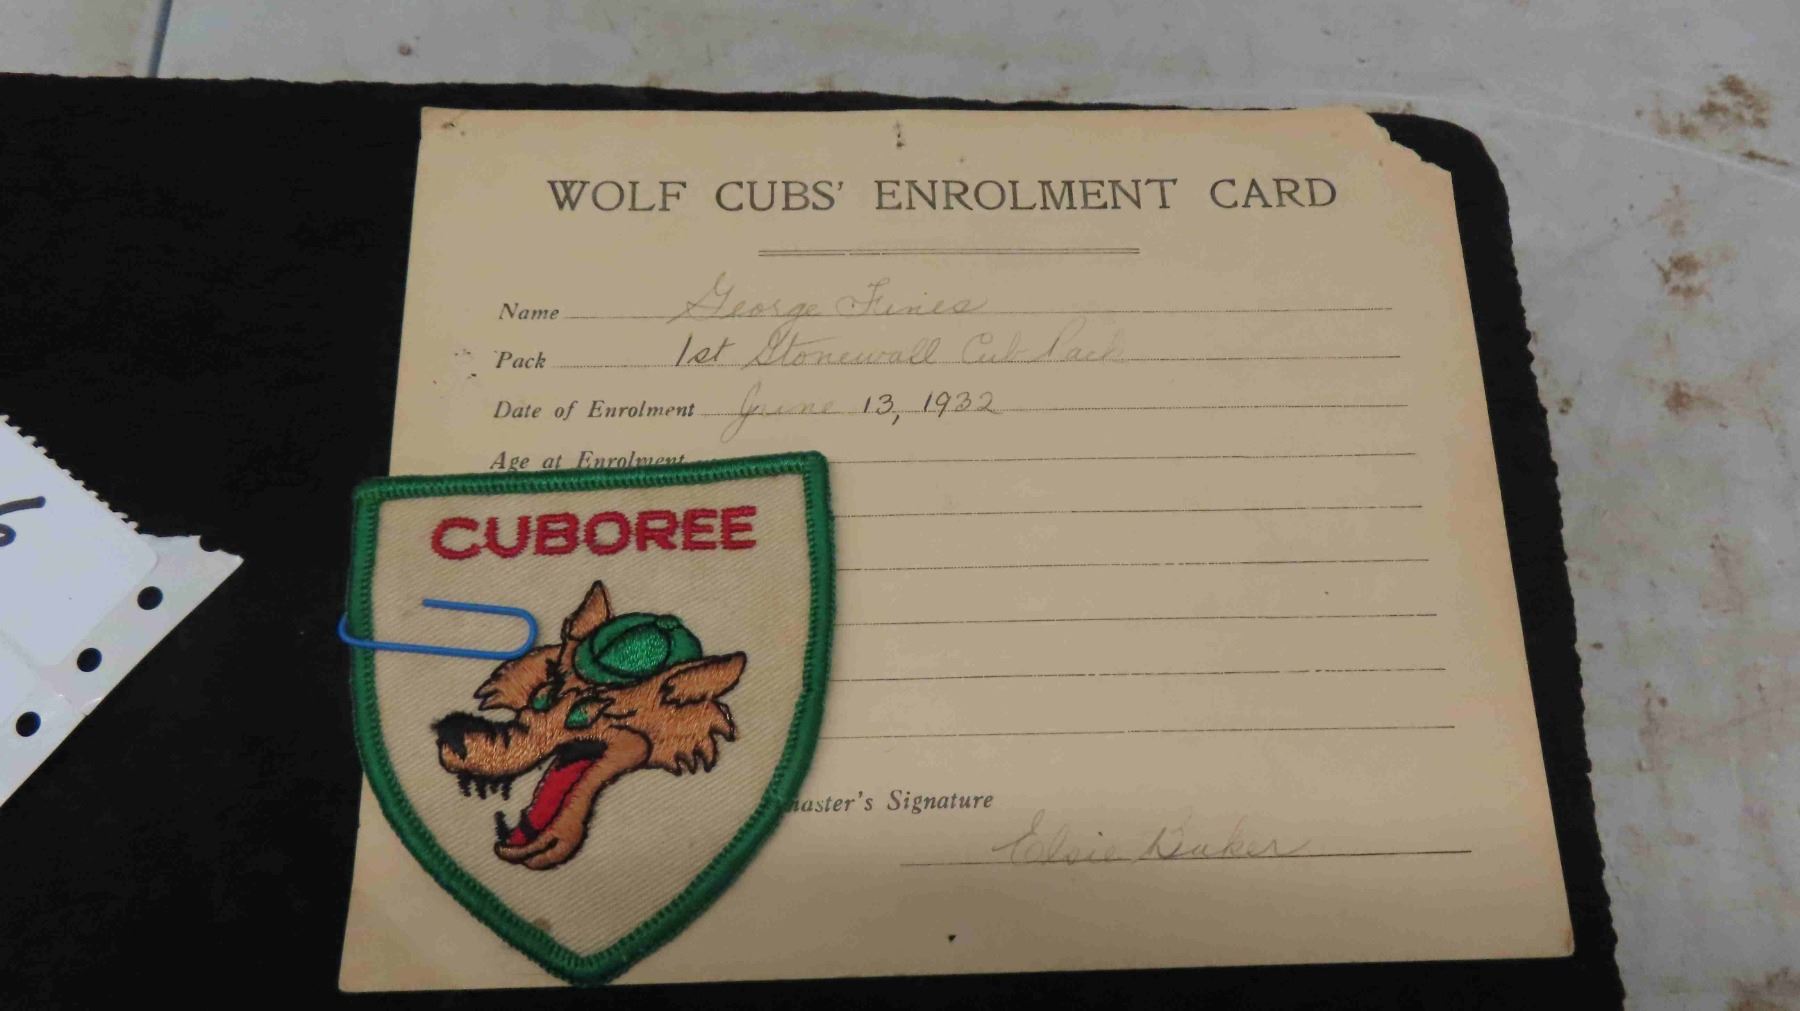 WOLF CUBS' ENROLMENT CARD
Name George Fines
Pack 1st Stonewall Cub Pack
Date of Enrolment June 13, 1932
Age at Enrolment
CUBOREE
master's Signature
Elsie Baker